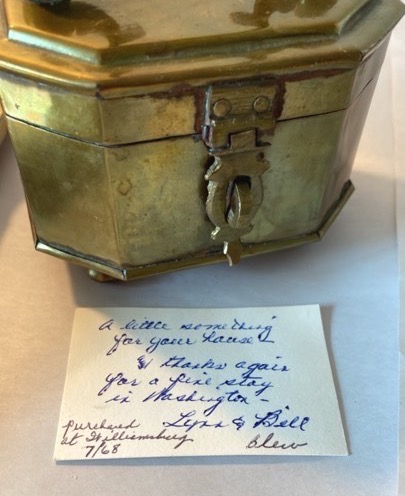 A little something
for your house –
thanks again
for a fine stay
in Washington –
Lynn & Bill
Blew
purchased
at Williamsburg
7/68